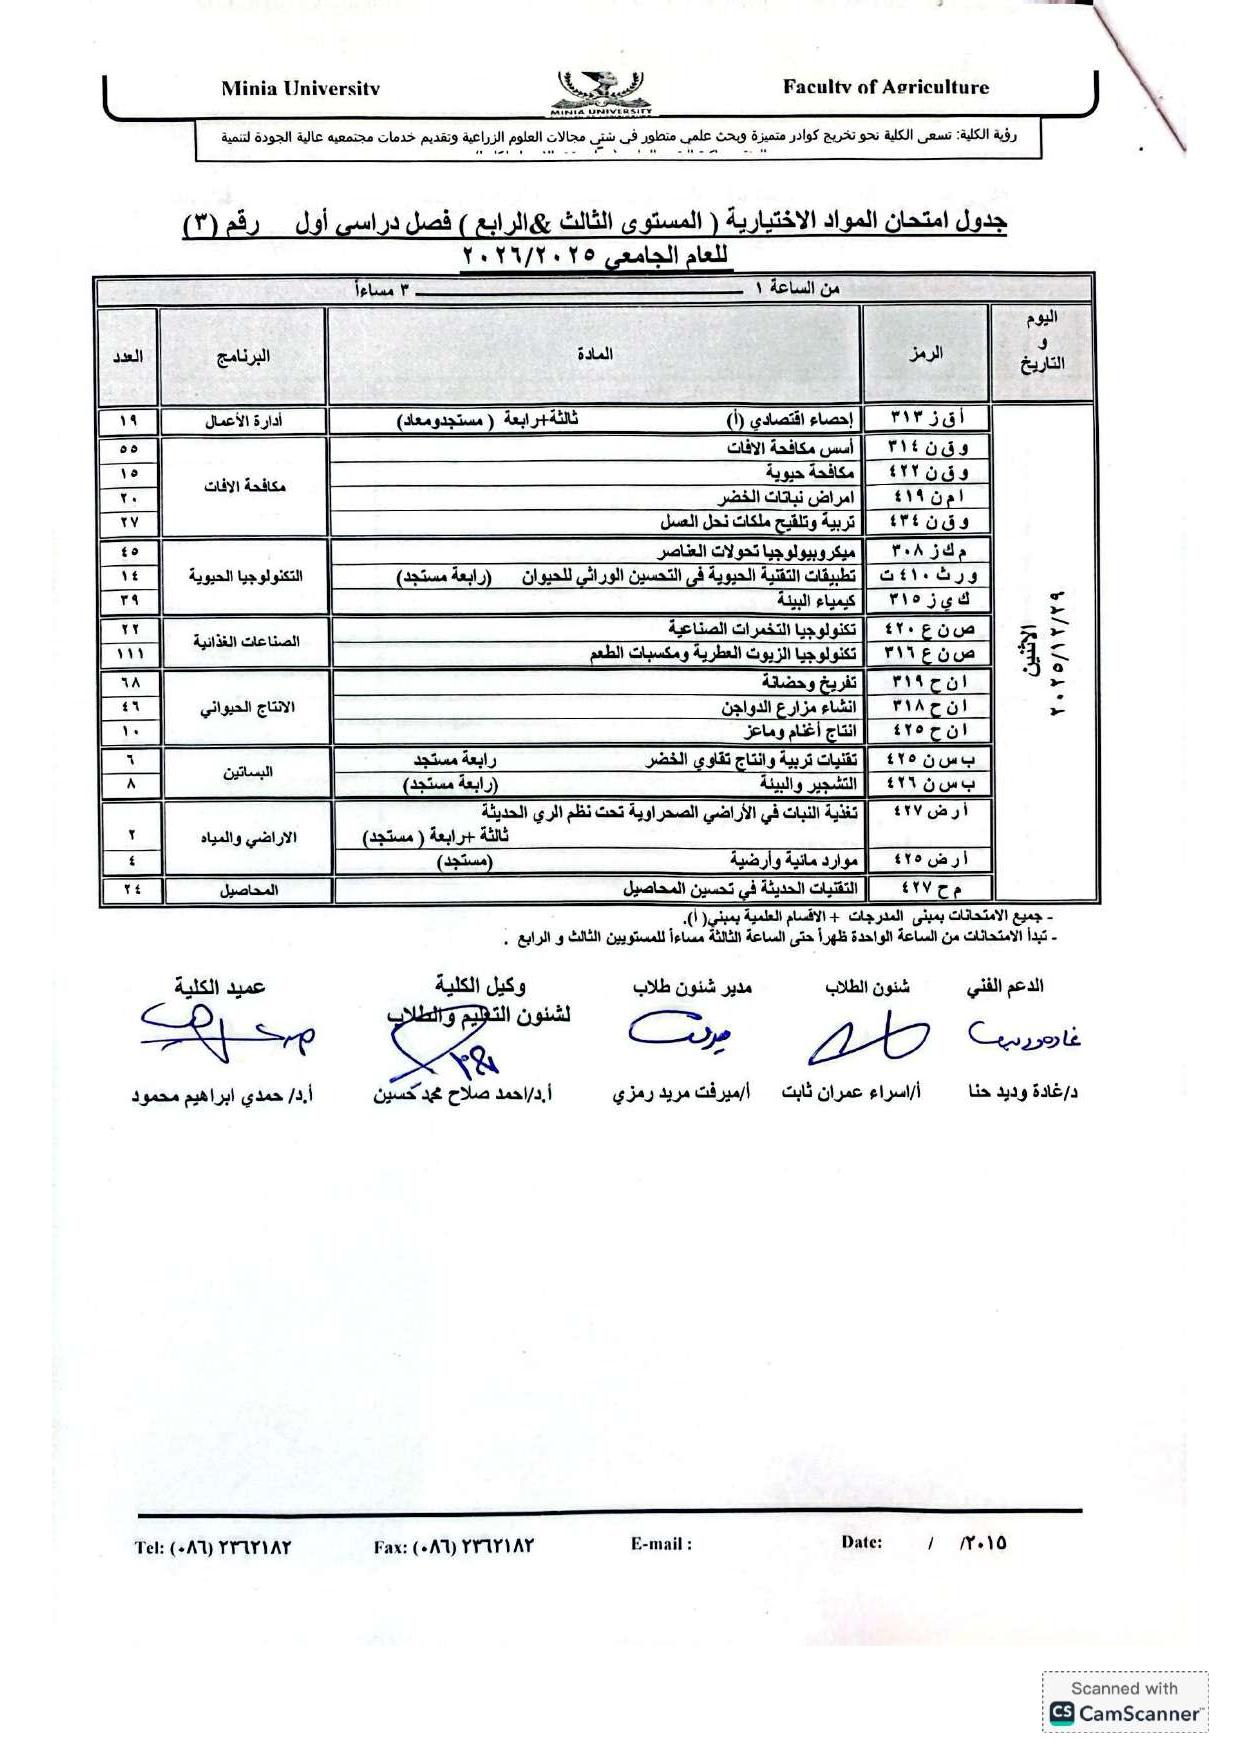 Minia University
Faculty of Agriculture
MINIA UNIVERSITY
رؤية الكلية: تسعى الكلية نحو تخريج كوادر متميزة وبحث علمي متطور في شتي مجالات العلوم الزراعية وتقديم خدمات مجتمعيه عالية الجودة لتنمية
جدول امتحان المواد الاختيارية ( المستوى الثالث &الرابع ) فصل دراسي أول رقم (٣)
للعام الجامعي ٢٠٢٦/٢٠٢٥
من الساعة ١ ـــــــــــــــــــــــــــــــ ٣ مساءاً
اليوم و التاريخ الرمز المادة البرنامج العدد
الاثنين ٢٠٢٥/١٢/٢٩
أ ق ز ٣١٣ إحصاء اقتصادي (أ) ثالثة+رابعة ( مستجدومعاد) أدارة الأعمال ١٩
و ق ن ٣١٤ أسس مكافحة الافات مكافحة الافات ٥٥
و ق ن ٤٢٢ مكافحة حيوية ١٥
ا م ن ٤١٩ امراض نباتات الخضر ٢٠
و ق ن ٤٣٤ تربية وتلقيح ملكات نحل العسل ٢٧
م ك ز ٣٠٨ ميكروبيولوجيا تحولات العناصر التكنولوجيا الحيوية ٤٥
و ر ث ٤١٠ ت تطبيقات التقنية الحيوية في التحسين الوراثي للحيوان (رابعة مستجد) ١٤
ك ي ز ٣١٥ كيمياء البيئة ٣٩
ص ن ع ٤٢٠ تكنولوجيا التخمرات الصناعية الصناعات الغذائية ٢٢
ص ن ع ٣١٦ تكنولوجيا الزيوت العطرية ومكسبات الطعم ١١١
ا ن ح ٣١٩ تفريخ وحضانة الانتاج الحيواني ٦٨
ا ن ح ٣١٨ انشاء مزارع الدواجن ٤٦
ا ن ح ٤٢٥ انتاج أغنام وماعز ١٠
ب س ن ٤٢٥ تقنيات تربية وانتاج تقاوي الخضر رابعة مستجد البساتين ٦
ب س ن ٤٢٦ التشجير والبيئة (رابعة مستجد) ٨
أ ر ض ٤٢٧ تغذية النبات في الأراضي الصحراوية تحت نظم الري الحديثة
ثالثة +رابعة ( مستجد) الاراضي والمياه ٢
أ ر ض ٤٢٥ موارد مائية وأرضية (مستجد) ٤
م ح ٤٢٧ التقنيات الحديثة في تحسين المحاصيل المحاصيل ٢٤
- جميع الامتحانات بمبنى المدرجات + الاقسام العلمية بمبني( أ).
- تبدأ الامتحانات من الساعة الواحدة ظهراً حتى الساعة الثالثة مساءاً للمستويين الثالث و الرابع .
الدعم الفني شئون الطلاب مدير شئون طلاب وكيل الكلية عميد الكلية
لشئون التعليم والطلاب
د/غادة وديد حنا أ/اسراء عمران ثابت أ/ميرفت مريد رمزي أ.د/احمد صلاح محمد حسين أ.د/ حمدي ابراهيم محمود
Tel: (٠٨٦) ٢٣٦٢١٨٢ Fax: (٠٨٦) ٢٣٦٢١٨٢ E-mail : Date: / /٢٠١٥
Scanned with
CS CamScanner